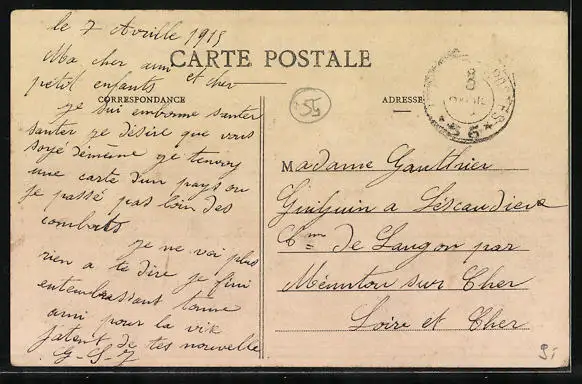 le 7 Avrille 1915
CARTE POSTALE
Ma cher ami et cher
petit enfants
CORRESPONDANCE
je sui enbonne santer
santer je désire que vous
soyé démème je tenvoy
une carte dun pays ou
je passé pas loin des
combats
je ne voi plus
rien a te dire je fini
entembrassant tonne
ami pour la vie
jatent de tes nouvelle
G-S-J
55
ADRESSE
8
55
Madame Gauthier
Guilguin a Lescaudiere
Cne de Langon par
Ménnitou sur Cher
Loire et Cher